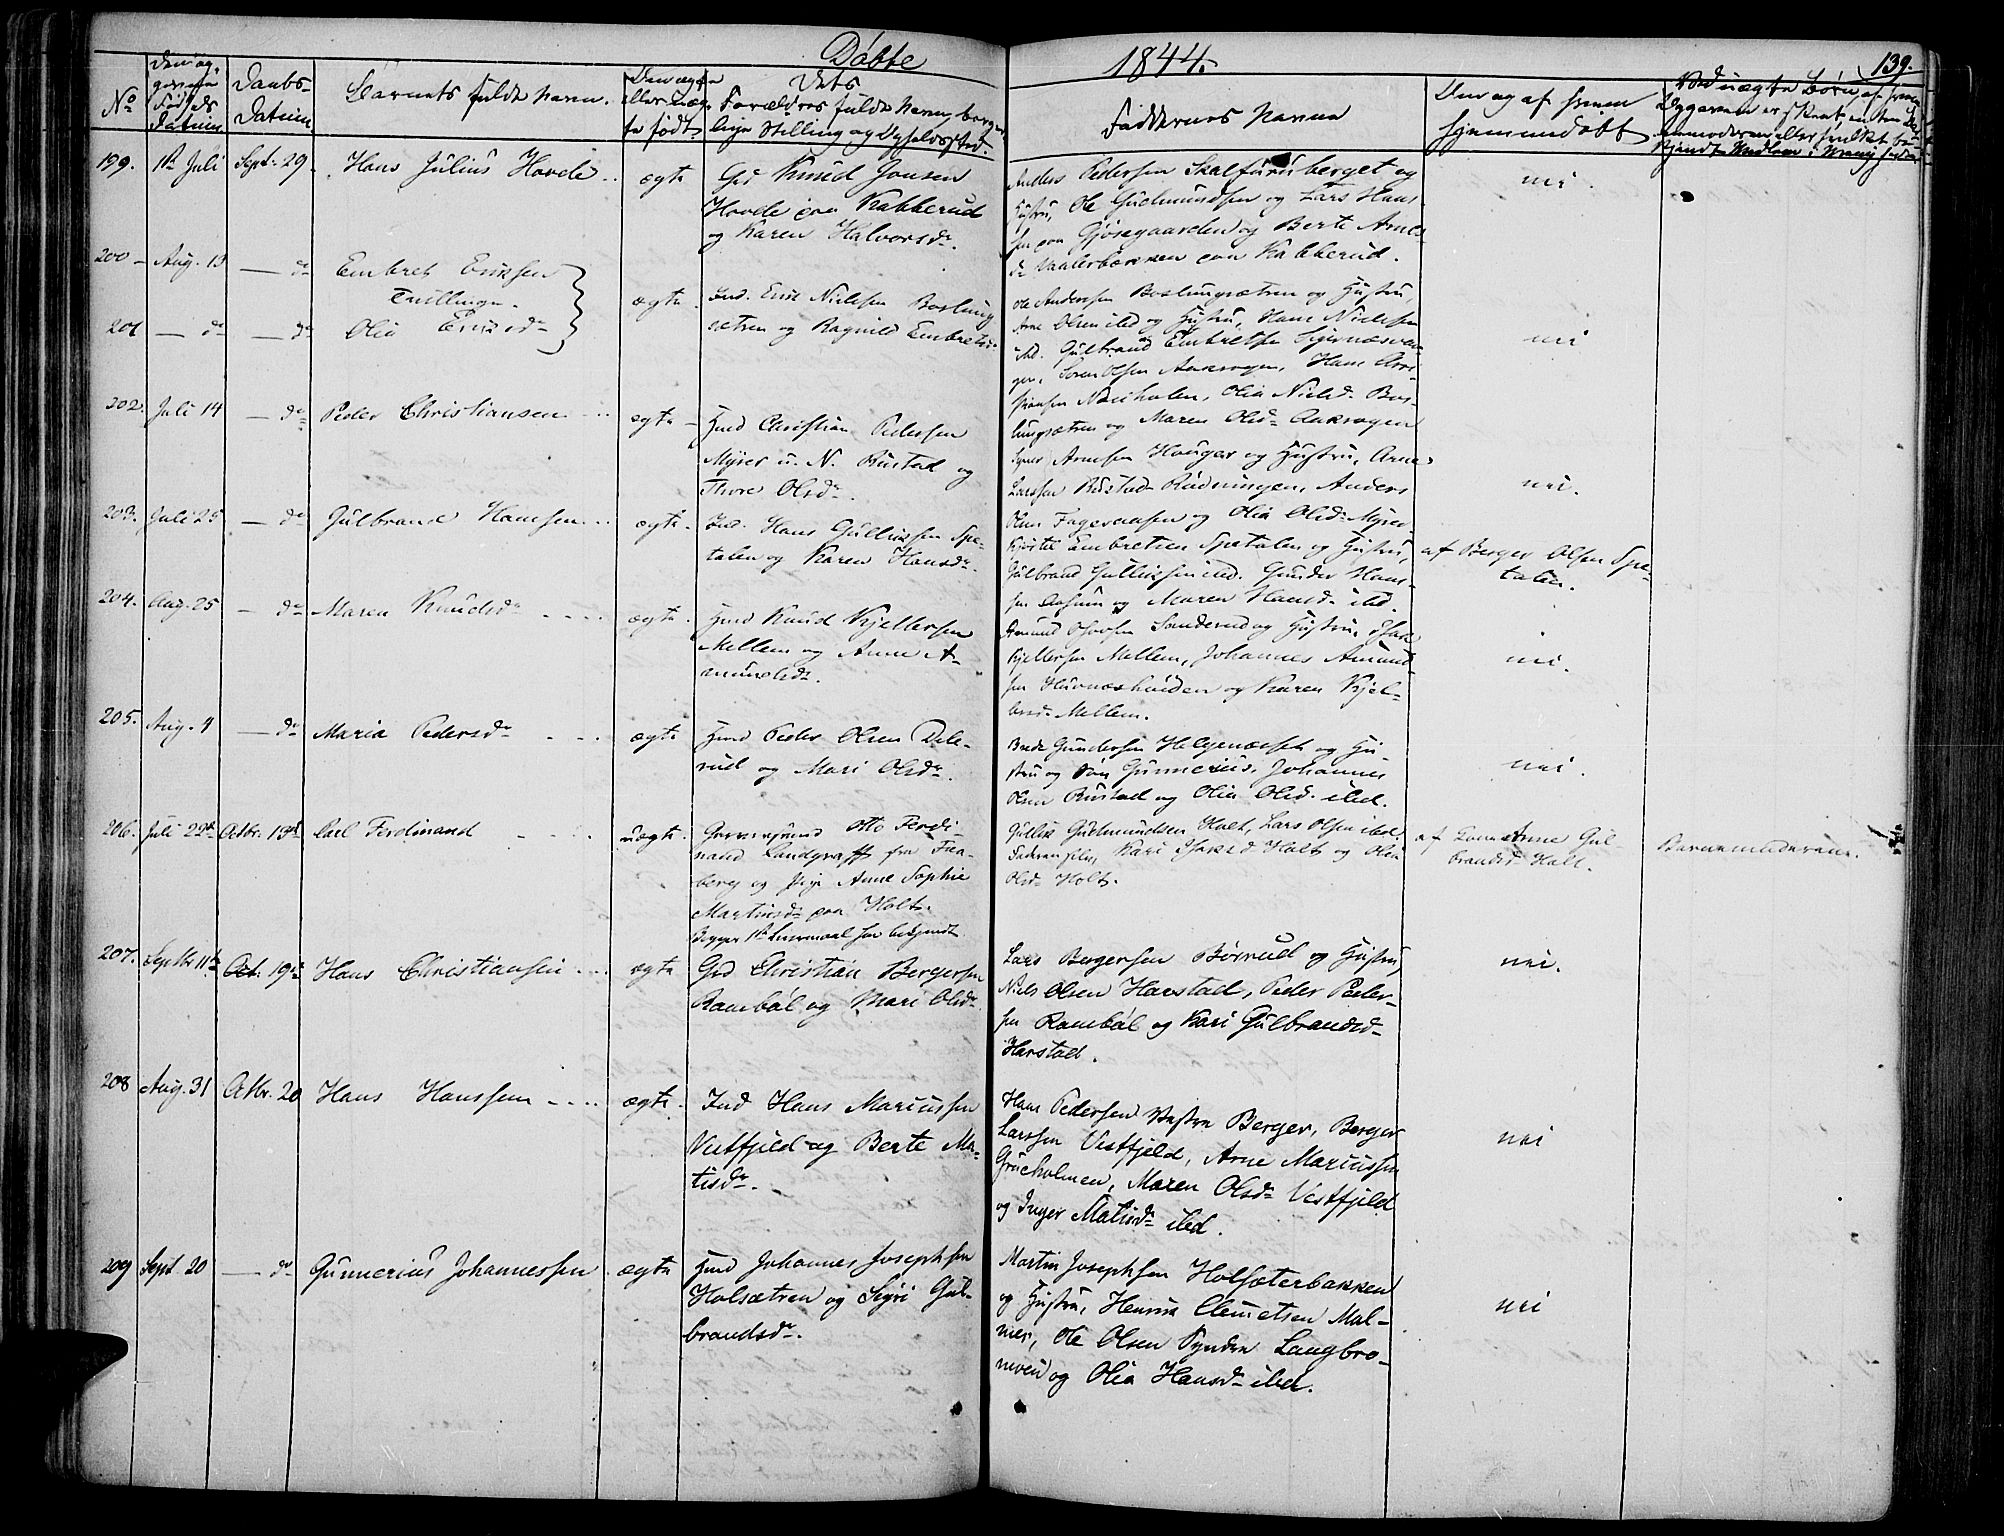 Døbte 1844. 139.
No
Datum
Daabs-
Datum
Barnets fulde Navn.
Den ægte
eller uæg-
te født.
Dets
Forældres fulde Navn, borger-
lige Stilling og Opholdssted.
Faddernes Navne
Den og af hvem
hjemmedøbt
Ved uægte Børn
199. 1st Juli Sept. 29. Hans Julius Hovde ægte
Knud Jonsen
Hovde paa Kabberud
og Karen Halvorsdr.
Anders Pedersen Skalfurusberget og
Hustru, Ole Gudmundsen og Lars Han-
sen paa Gjøsegaarden og Berte Arnes-
dr Vaalerbakken paa Kabberud.
nei.
200 Aug. 13 — do Embret Eriksen
Tvillinger.
201 — do — do Olia Eriksdr
ægte.
Ind. Erik Nielsen Boslung-
sætren og Ragnild Embretsdr
Ole Andersen Boslungsætren og Hustru,
Arne Olsen ibd og Hustru, Hans Nielsen
ibd. Gulbrand Embretsen
Søren Olsen Hans
Olia Nielsdr Bos-
lungsætren og Maren Olsdr
nei
202. Juli 14 — do Peder Christiansen ægte
Hmd Christian Pedersen
Myrer u. N. Rustad og
Thore Olsdr.
Arnesen Houger og Hustru, Arne
Larssen Rustad Rudningen, Anders
Olsen Fagernæsen og Olia Olsdr Myrer
nei.
203. Juli 25 — do Gulbrand Hansen ægte
Ind. Hans Gulliksen Spe-
talen og Karen Hansdr.
Embretsen Spetalen og Hustru,
Gulbrand Gulliksen ibd. Gunder Han-
sen Aasum og Maren Hansdr ibd.
af Berger Olsen Spe-
talen.
204. Aug. 25 — do Maren Knudsdr ægte.
Hmd Knud Kjellersen
Mellem og Anne A-
mundsdr.
Amund Olsen Sanderud og Hustru,
Kjellersen Mellem, Johannes Amund-
sen og Karen Kjel-
Mellem.
nei.
205. Aug. 4 — do Maria Pedersdr ægte
Hmd Peder Olsen Dele-
rud og Mari Olsdr.
Brede Gundersen Helgenæsset og Hu-
stru og Søn Gunnerius, Johannes
Olsen Rustad og Olia Olsd. ibd.
nei.
206. Juli 22de Octbr. 13de Carl Ferdinand uægte.
Otto Ferdi-
nand Landgraff fra Faa-
berg og Pige Anne Sophie
Martinsdr paa Holt.
Begges 1ste Leiermaal saa bekjendt
Gullik Gudmundsen Holt, Lars Olsen ibd
Kari Isaksd Holt og Olia
Olsdr Holt.
af Anne Gul-
brandsdr Holt.
Barnemoderen.
207. Septbr 11te Oct. 19de Hans Christiansen ægte
Grd Christian Bergersen
Rambøl og Mari Olsdr
Lars Bergersen Børrud og Hustru,
Niels Olsen Harstad, Peder Peder-
sen Rambøl og Kari Gulbrandsd-
Harstad.
nei.
208 Aug. 31 Octbr. 20 Hans Hanssen ægte.
Ind Hans Mariussen
Vestfjeld og Berte Ma-
tisdr.
Hans Pedersen Vestre Berger, Berger
Larssen Vestfjeld, Arne Mariussen
Grueholmen, Maren Olsdr Vestfjeld
og Inger Matisdr ibd.
nei
209 Sept. 20 — do Gunnerius Johannessen ægte
Hmd Johannes Josephsen
Holsætren og Sigri Gul-
brandsdr.
Martin Josephsen Holsæterbakken
og Hustru, Henrik Clemetsen Mal-
mer, Ole Olsen Syndre Langbro-
moen og Olia Hansdr ibd.
nei